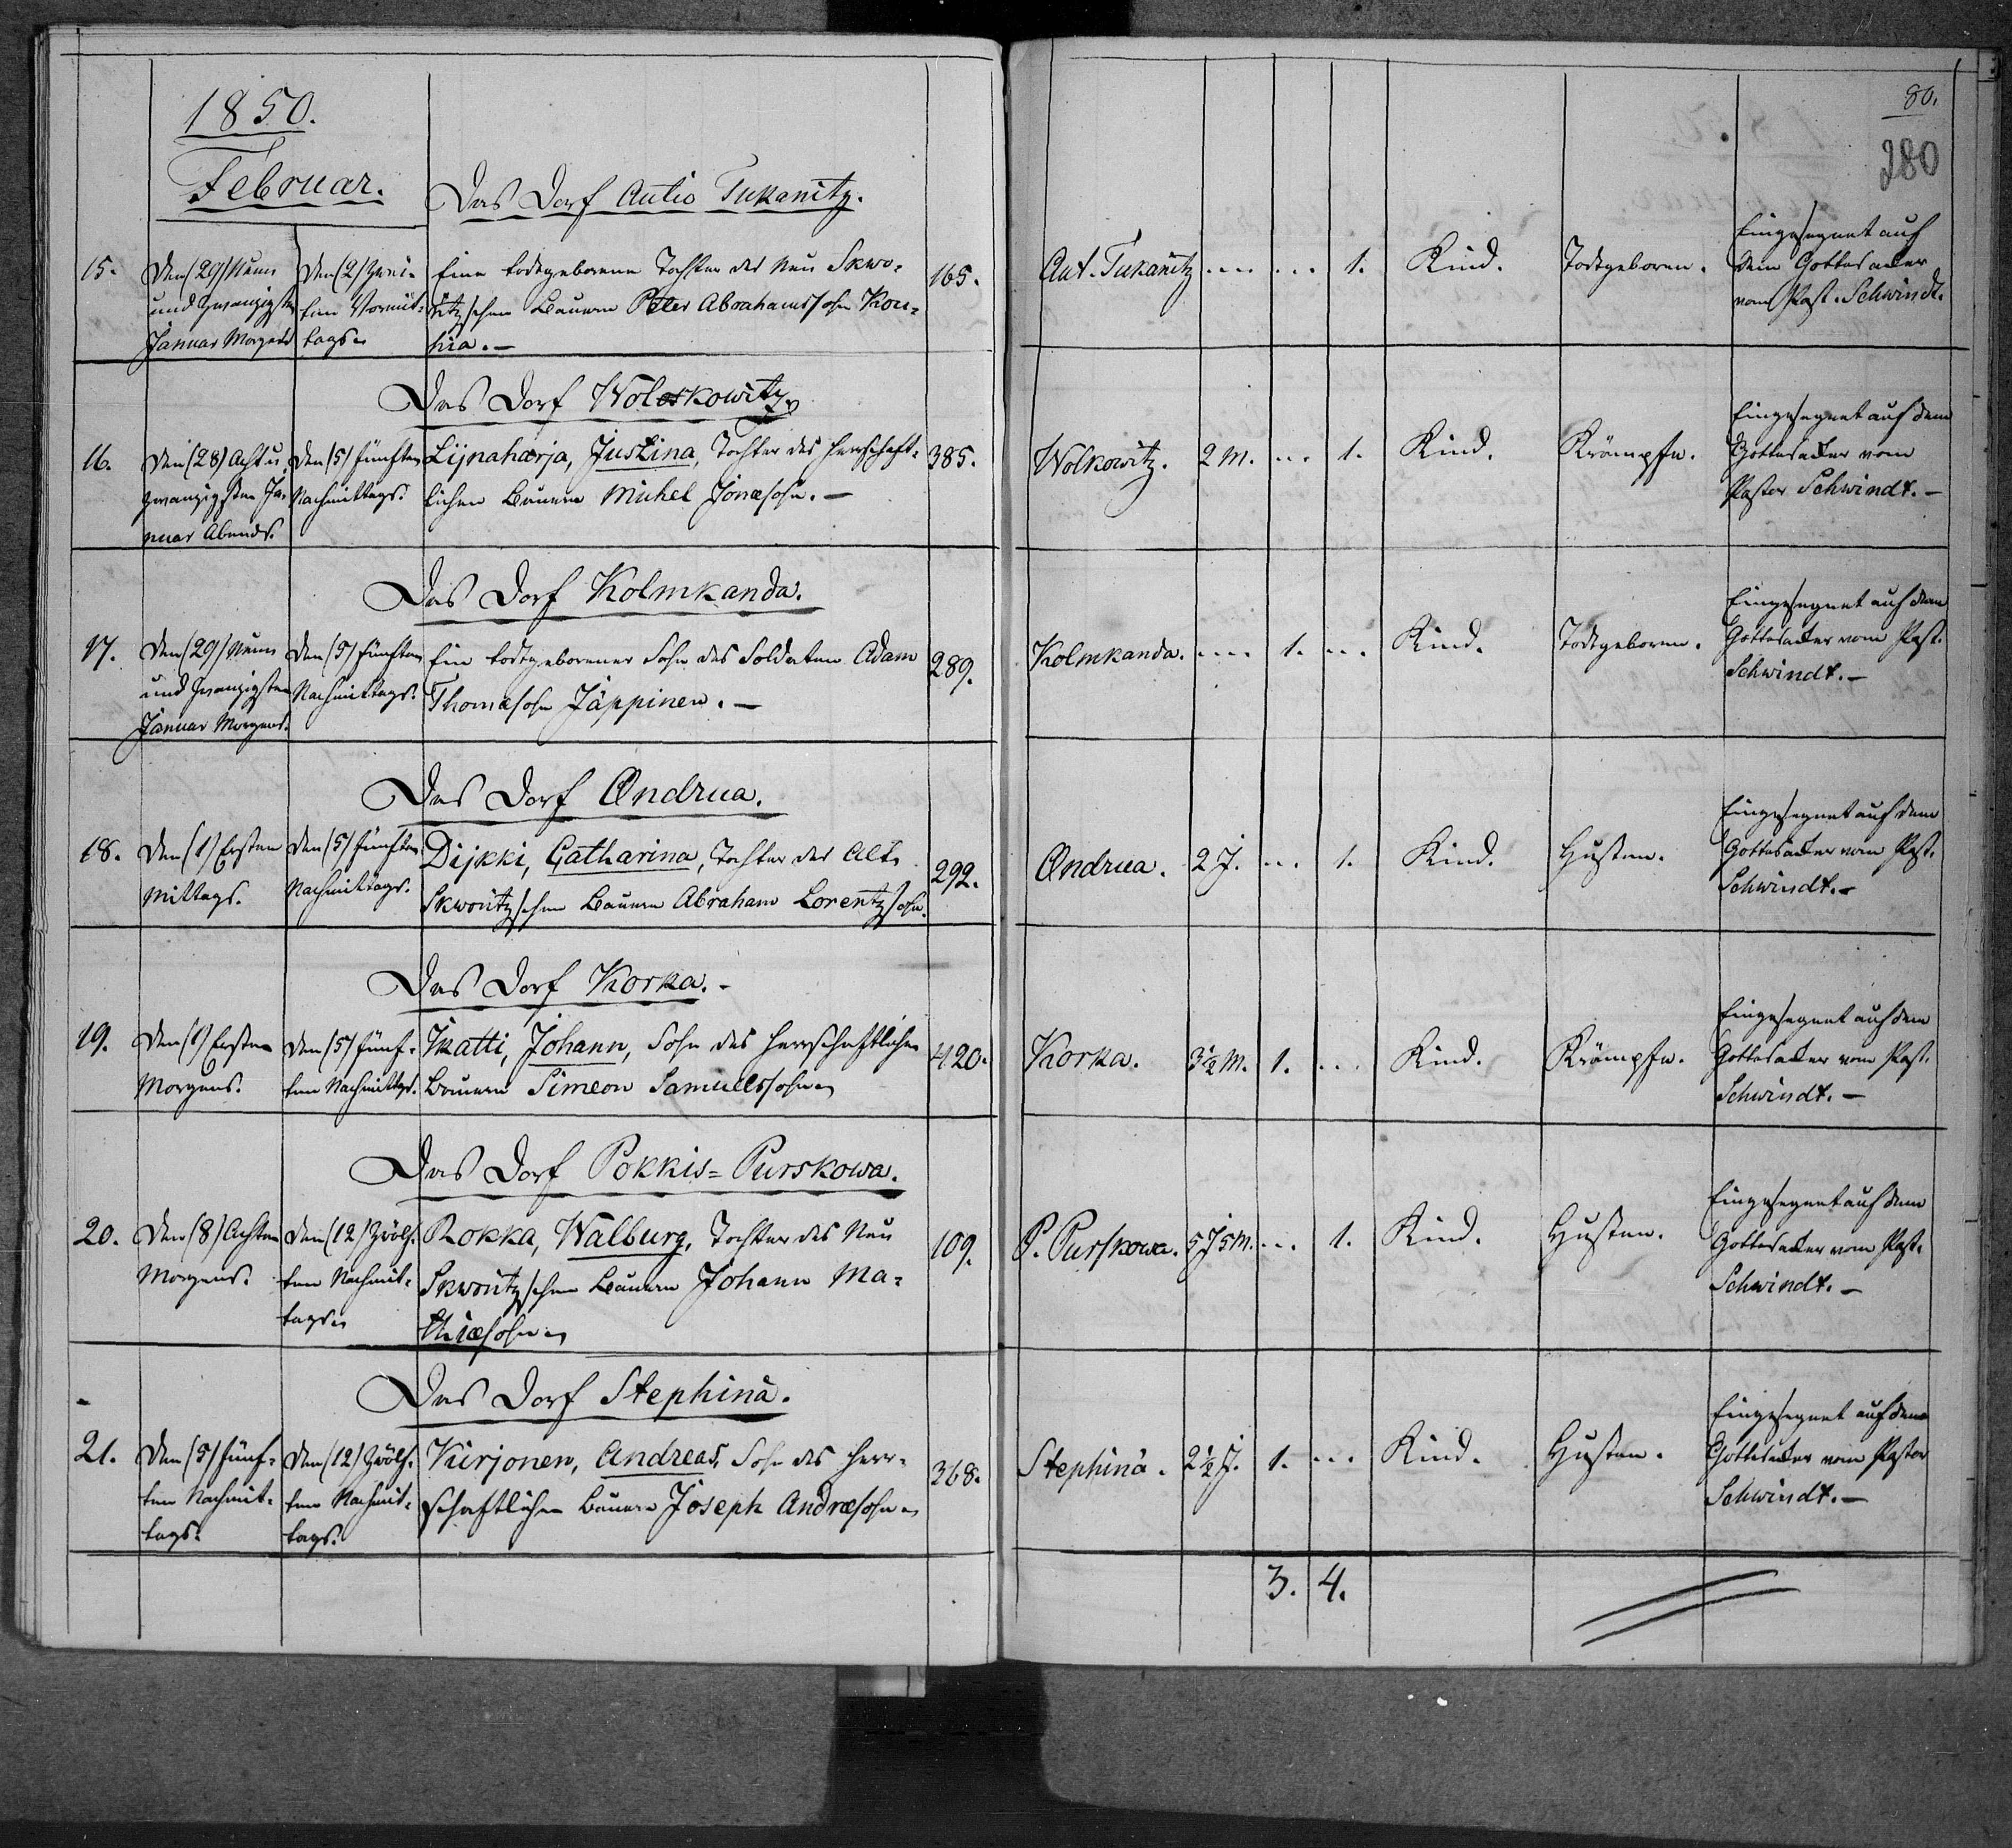 1850.
Februar.
Das Dorf Autio Tukanitz.
15.
Den (29) Neun
und zwanzigsten
Januar Morgens
Den (2) Zwei-
ten Vormit-
tags.
Eine todtgeborene Tochter des Neu Skwo-
ritzschen Bauern Peter Abrahamssohn Kou-
hia. —
165.
Das Dorf Wolkowitz.
16.
Den (28) Acht u.
zwanzigsten Ja-
nuar Abends.
Den (5) fünften
Nachmittags.
Lijnaharja, Justina, Tochter des herrschaft-
lichen Bauern Michel Jonæsohn. —
385.
Das Dorf Kolmkanda.
17.
Den (29) Neun
und zwanzigsten
Januar Morgens.
Den (5) fünften
Nachmittags.
Ein todtgeborener Sohn des Soldaten Adam
Thomæsohn Jäppinen. —
289.
Das Dorf Andrua.
18.
Den (1) Ersten
Mittags.
Den (5) fünften
Nachmittags.
Dijkki, Catharina, Tochter des Alt-
Skworitzschen Bauern Abraham Lorentzsohn.
292.
Das Dorf Korka. -
19.
Den (1) Ersten
Morgens.
Den (5) fünf-
ten Nachmittgs.
Katti, Johann, Sohn des herrschaftlichen
Bauern Simeon Samuelssohn.
420.
Das Dorf Pokkis=Purskowa.
20.
Den (8) Achten
Morgens.
Den (12) Zwölf-
ten Nachmit-
tags.
Rokka, Walburg, Tochter des Neu
Skworitzschen Bauern Johann Ma-
thiæsohn.
109.
Das Dorf Stephinä.
21.
Den (5) fünf-
ten Nachmit-
tags.
Den (12) Zwölf-
ten Nachmit-
tags.
Kirjonen, Andreas, Sohn des herr-
schaftlichen Bauern Joseph Andræsohn.
368.
80.
280
Aut. Tukanitz
1.
Kind.
Todtgeboren.
Eingesegnet auf
dem Gottesacker
vom Past. Schwindt.
Wolkowitz.
2 M.
1.
Kind.
Krämpfe.
Eingesegnet auf dem
Gottesacker vom
Pastor Schwindt. —
Kolmkanda.
1.
Kind.
Todtgeboren.
Eingesegnet auf dem
Gottesacker vom Past.
Schwindt. —
Andrua.
2 J.
1.
Kind.
Husten.
Eingesegnet auf dem
Gottesacker vom Past.
Schwindt. —
Korka.
3½ M.
1.
Kind.
Krämpfe.
Eingesegnet auf dem
Gottesacker vom Past.
Schwindt. —
P. Purskowa.
5 J 5 M.
1.
Kind.
Husten.
Eingesegnet auf dem
Gottesacker vom Past.
Schwindt. —
Stephinä.
2½ J.
1.
Kind.
Husten.
Eingesegnet auf dem
Gottesacker vom Pastor
Schwindt. —
3.
4.